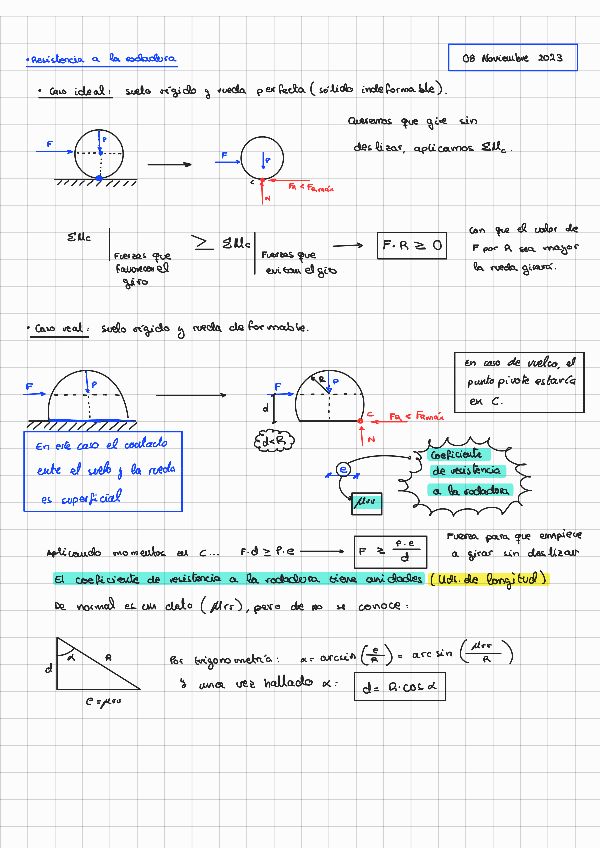 • Resistencia a la rodadura
08 Noviembre 2023
• Caso ideal: suelo rígido y rueda perfecta (sólido indeformable).
Queremos que gire sin
deslizar, aplicamos ΣMc.
F
P
F
P
C
FR < FRmáx
N
ΣMc | Fuerzas que favorecen el giro ≥ ΣMc | Fuerzas que evitan el giro → F·R ≥ 0
Con que el valor de
F por R sea mayor
la rueda girará.
• Caso real: suelo rígido y rueda deformable.
En caso de vuelco, el
punto pivote estaría
en C.
F
P
F
R
P
d
d<R
C
FR < FRmáx
N
e
μrr
En este caso el contacto
entre el suelo y la rueda
es superficial
Coeficiente
de resistencia
a la rodadura
Aplicando momentos en C... F·d ≥ P·e → F ≥ P·e/d
Fuerza para que empiece
a girar sin deslizar
El coeficiente de resistencia a la rodadura tiene unidades (Uds. de longitud)
De normal es un dato (μrr), pero de no se conoce:
d
α
R
e = μrr
Por trigonometría: α = arcsin (e/R) = arcsin (μrr/R)
Y una vez hallado α: d = R·cos α